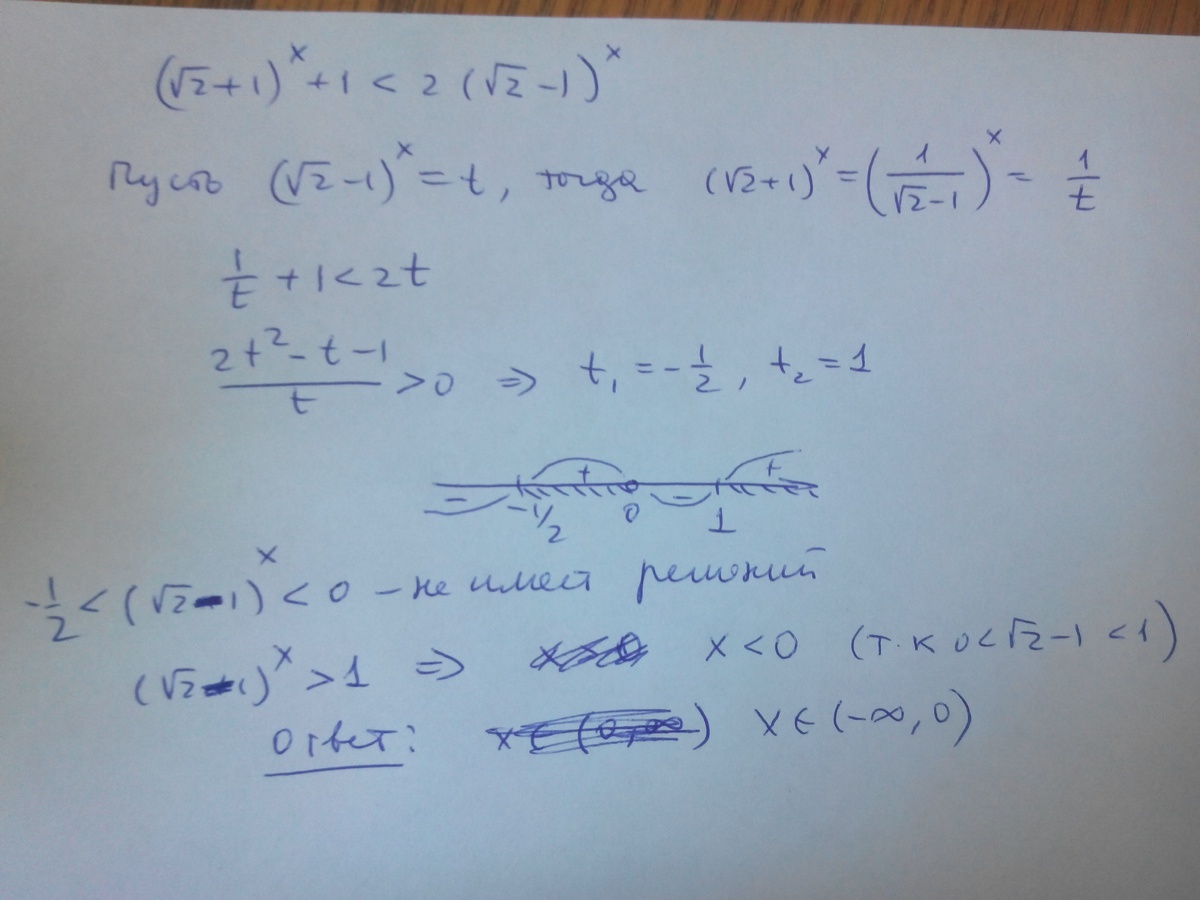 (√2+1)^x + 1 < 2 (√2 -1)^x
Пусть (√2 -1)^x = t, тогда (√2+1)^x = (1/(√2-1))^x = 1/t
1/t + 1 < 2t
(2t² - t - 1)/t > 0 ⇒ t₁ = -1/2, t₂ = 1
- + - +
-1/2 0 1
-1/2 < (√2-1)^x < 0 - не имеет решений
(√2-1)^x > 1 ⇒ x < 0 (т.к 0 < √2-1 < 1)
Ответ: x ∈ (-∞, 0)